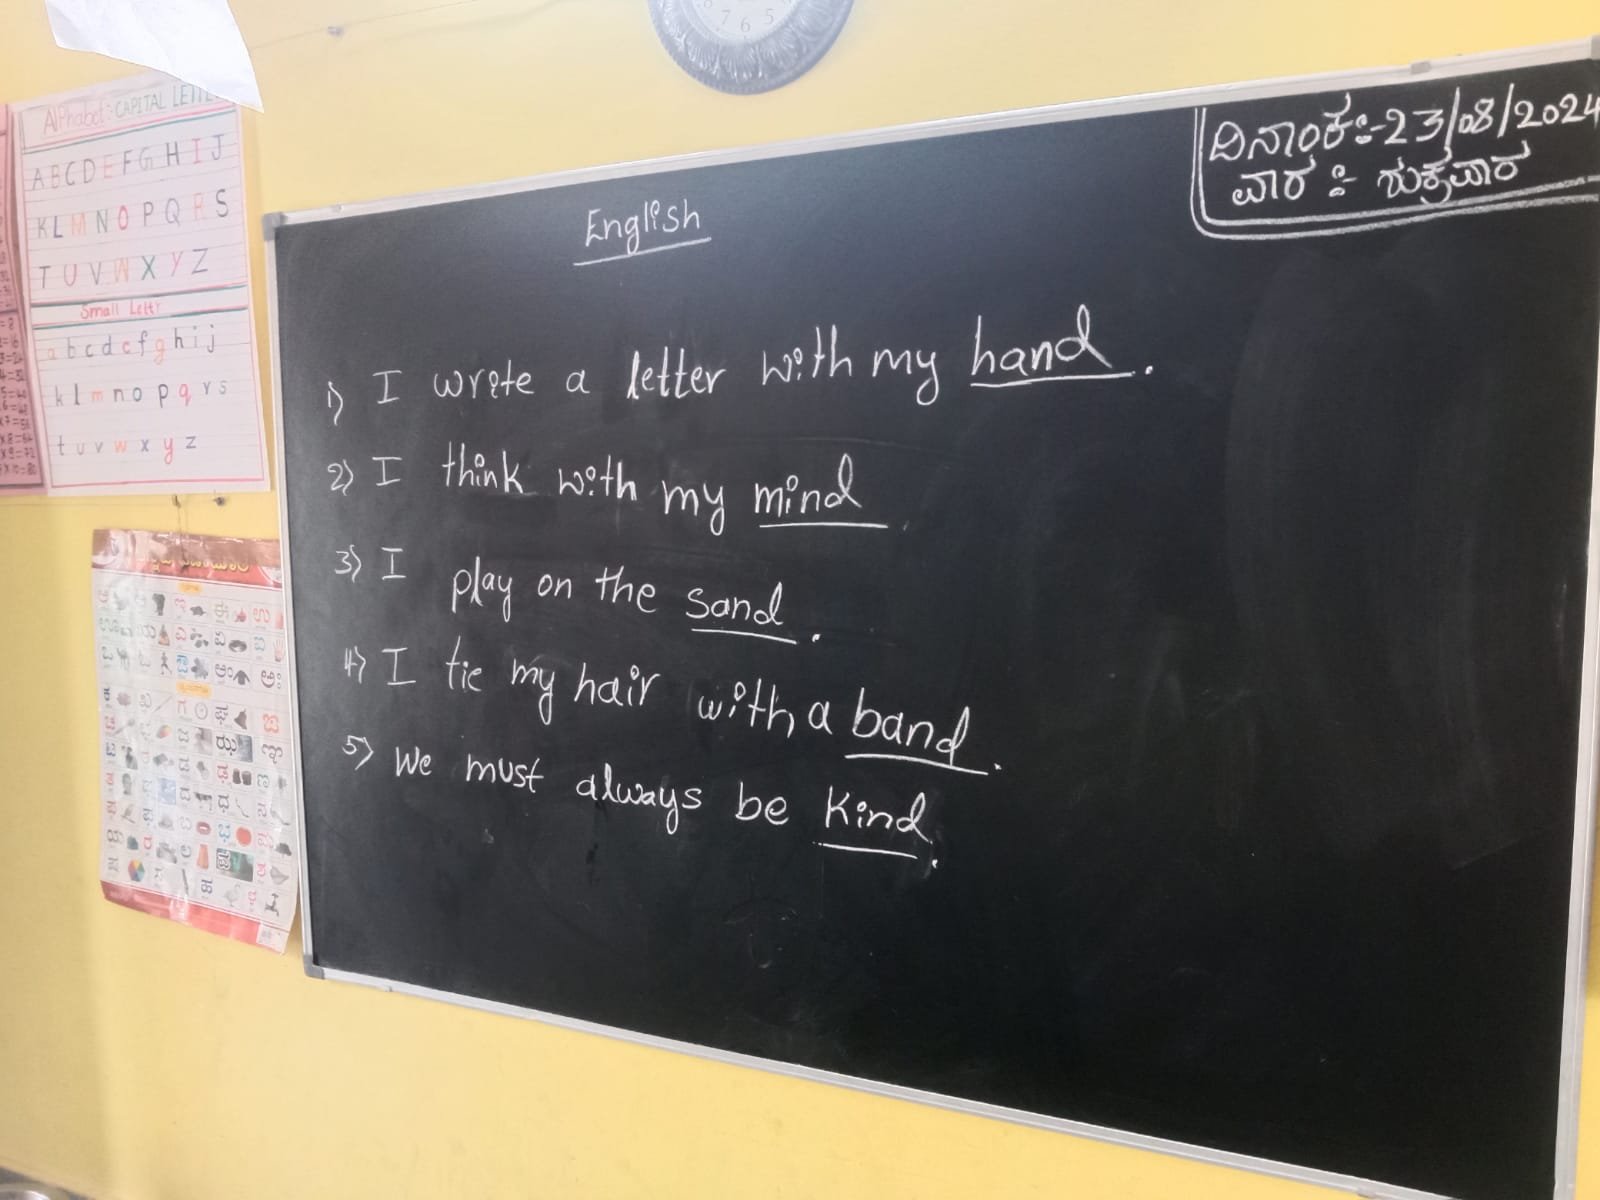 7 6 5
AlPhabet:- CAPITAL LETTE
A B C D E F G H I J
K L M N O P Q R S
T U V W X Y Z
Small Lettr
a b c d e f g h i j
k l m n o p q r s
t u v w x y z
ದಿನಾಂಕ:-23/08/2024
ವಾರ :- ಶುಕ್ರವಾರ
English
1) I write a letter with my hand.
2) I think with my mind
3) I play on the sand.
4) I tie my hair with a band.
5) We must always be Kind.